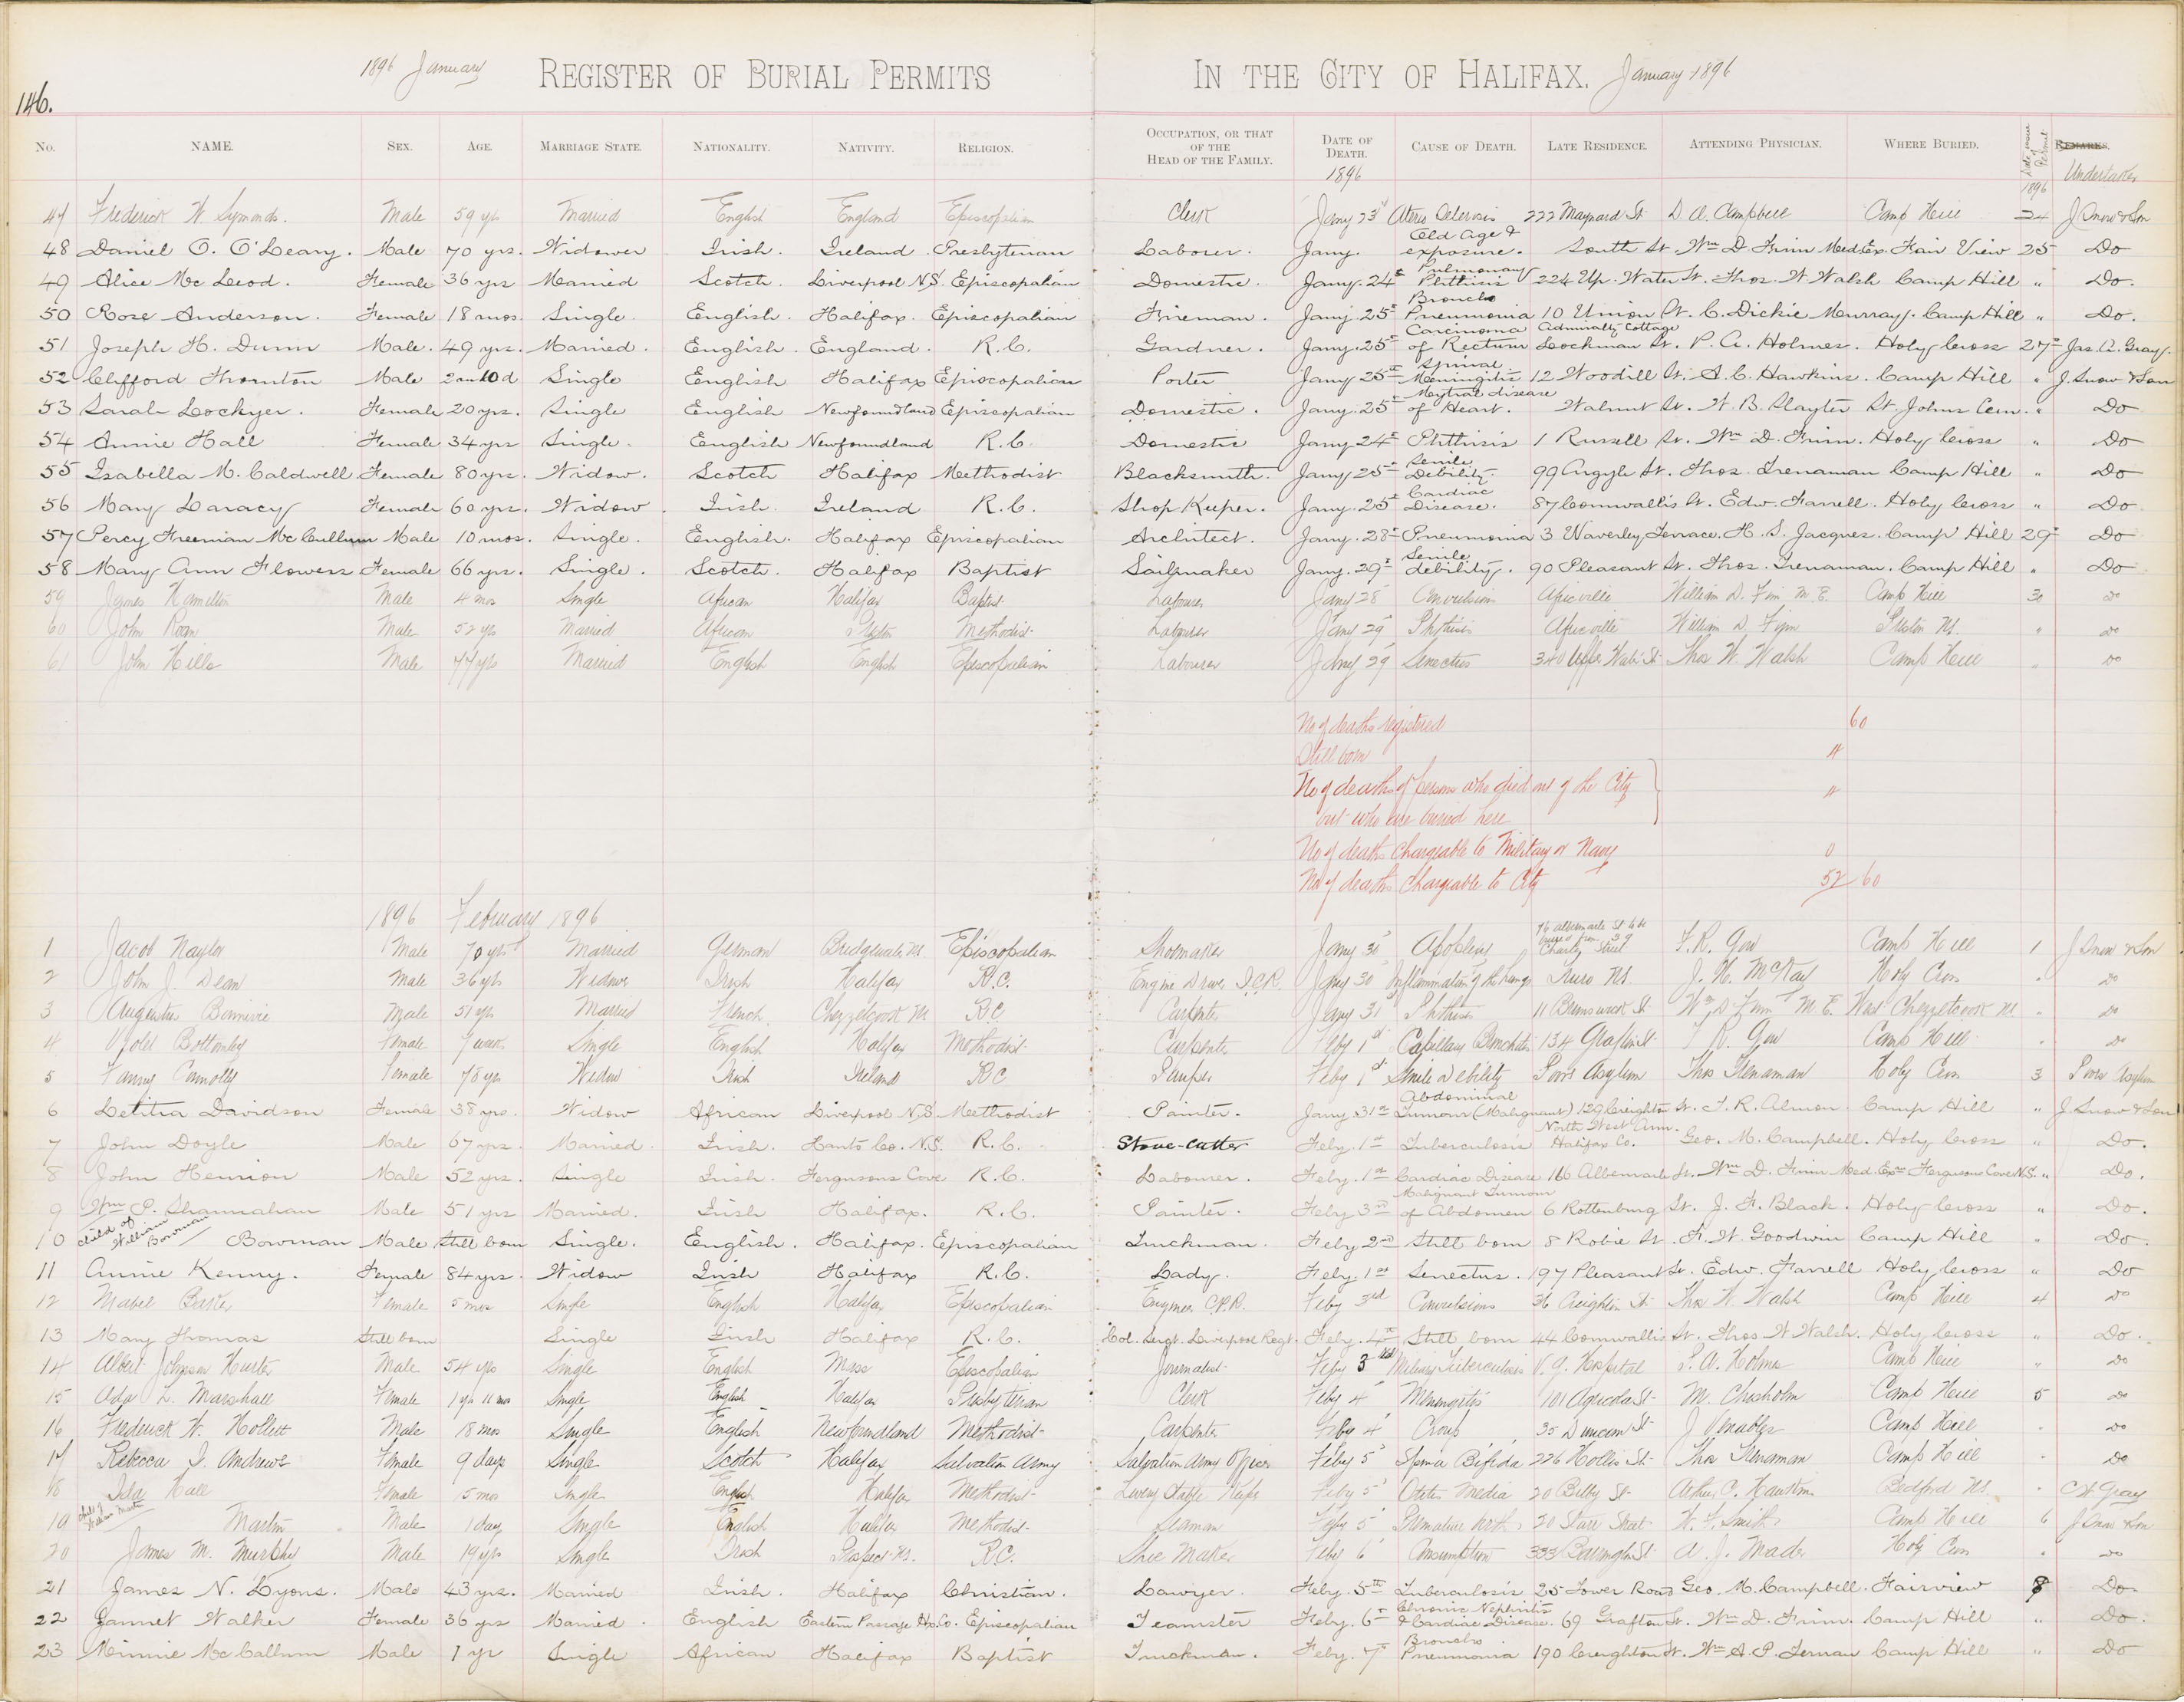 146.
1896 January REGISTER OF BURIAL PERMITS IN THE CITY OF HALIFAX. January 1896
No. NAME. SEX. AGE. MARRIAGE STATE. NATIONALITY. NATIVITY. RELIGION. OCCUPATION, OR THAT OF THE HEAD OF THE FAMILY. DATE OF DEATH. 1896 CAUSE OF DEATH. LATE RESIDENCE. ATTENDING PHYSICIAN. WHERE BURIED. Date of Permit 1896 REMARKS. Undertaker
47 Frederick W Symonds. Male 59 yrs Married English England Episcopalian Clerk Jany 23d 222 Maynard St D A. Campbell Camp Hill 24 J Snow & Son
48 Daniel O. O'Leary. Male 70 yrs. Widower Irish. Ireland Presbyterian Laborer. Jany. Old Age & exposure. South St. Wm D Finn Med Ex. Fair View 25 Do
49 Alice Mc Leod. Female 36 yrs Married Scotch. Liverpool N.S. Episcopalian Domestic. Jany. 24th Pulmonary Phthisis 224 Up. Water St. Thos. W Walsh Camp Hill " Do.
50 Rose Anderson. Female 18 mos. Single. English. Halifax. Episcopalian Fireman. Jany. 25th Broncho Pneumonia 10 Union St. C. Dickie Murray. Camp Hill " Do.
51 Joseph H. Dunn Male. 49 yrs. Married. English. England. R.C. Gardner. Jany. 25th Carcinoma of Rectum Admiralty Cottage Lockman St. P. A. Holmes. Holy Cross 27th Jas. A. Gray.
52 Clifford Thornton Male 2 m 10 d Single English Halifax Episcopalian Porter Jany 25th Spinal Meningitis 12 Woodill St. A. C. Hawkins. Camp Hill " J. Snow & Son
53 Sarah Lockyer. Female 20 yrs. Single English Newfoundland Episcopalian Domestic. Jany. 25th Mytral disease of Heart. Walnut St. W. B. Slayter St. Johns Cem. " Do
54 Annie Hall Female 34 yrs Single. English Newfoundland R.C. Domestic Jany 24th Phthisis 1 Russell St. Wm D. Finn. Holy Cross " Do
55 Isabella M. Caldwell Female 80 yrs. Widow. Scotch Halifax Methodist Blacksmith. Jany 25th Senile Debility. 99 Argyle St. Thos. Trenaman Camp Hill " Do
56 Mary Laracy Female 60 yrs. Widow. Irish. Ireland R.C. Shop Keeper. Jany. 25th Cardiac Disease. 87 Cornwallis St. Edw. Farrell. Holy Cross " Do
57 Percy Freeman Mc Cullum Male 10 mos. Single. English. Halifax Episcopalian Architect. Jany. 28th Pneumonia 3 Waverley Terrace. H. S. Jacques. Camp Hill 29th Do
58 Mary Ann Flowers Female 66 yrs. Single. Scotch. Halifax Baptist Sailmaker Jany. 29th Senile debility. 90 Pleasant St. Thos. Trenaman. Camp Hill " Do
59 James Hamilton Male 4 mos Single African Halifax Baptist Labourer Jany 28 Convulsion Africville William D. Finn M.E. Camp Hill 30 do
60 John Roan Male 52 yrs Married African Methodist Labourer Jany 29 Phthisis Africville William D. Finn Preston NS. " do
61 John Hills Male 77 yrs Married English English Episcopalian Labourer Jany 29 Senectus 340 Upper Water St Thos W. Walsh Camp Hill " do
No of deaths registered 60
Still born 4
No of deaths of persons who died out of the City
but who are buried here 4
No of deaths chargeable to Military or Navy 0
No of deaths chargeable to City 52 60
1896 February 1896
1 Jacob Naylor Male 70 yrs Married German Bridgewater NS. Episcopalian Shoemaker Jany 30 Apoplexy 76 Albemarle St to be buried from 39 Charles Street Camp Hill 1 J Snow & Son
2 John J. Dean Male 36 yrs Widower Irish Halifax R.C. Engine Driver I.C.R. Jany 30 Inflammation of the lungs Truro NS. J. H. McKay Holy Cross " do
3 Augustus Male 51 yrs Married French Chezzetcook NS. R.C. Carpenter Jany 31 Phthisis 11 Brunswick St Wm D Finn M.E. West Chezzetcook NS " do
4 Violet Bottomley Female 7 weeks Single English Halifax Methodist Carpenter Feby 1st Capillary Bronchitis 134 Grafton St Camp Hill " do
5 Fanny Connolly Female 78 yrs Widow Irish Ireland R.C Pauper Feby 1st Senile Debility Poors Asylum Thos Trenaman Holy Cross 3 Poors Asylum
6 Letitia Davidson Female 38 yrs. Widow African Liverpool N.S. Methodist Painter. Jany. 31st Abdominal Tumour (Malignant) 129 Creighton St. T. R. Almon. Camp Hill " J. Snow & Son
7 John Doyle Male 67 yrs. Married. Irish. Hants Co. N.S. R.C. Stone-cutter Feby. 1st Tuberculosis North West Arm. Halifax Co. Geo. M. Campbell. Holy Cross " Do.
8 John Henrion Male 52 yrs. Single Irish. Fergusons Cove R.C. Labourer. Feby. 1st Cardiac Disease 166 Albemarle St. Wm D. Finn Med. Exr Fergusons Cove N.S. " Do.
9 Wm P. Shannahan Male 51 yrs Married. Irish Halifax. R.C. Painter. Feby 3rd Malignant Tumour of Abdomen 6 Rottenburg St. J. F. Black. Holy Cross " Do.
10 Child of William Bowman Bowman Male Still born Single. English. Halifax. Episcopalian Truckman. Feby 2nd Still born 8 Robie St. F. W. Goodwin Camp Hill " Do
11 Annie Kenny. Female 84 yrs. Widow Irish Halifax R.C. Lady. Feby. 1st Senectus. 197 Pleasant St. Edw. Farrell Holy Cross " Do
12 Mabel Baker Female 5 mos Single English Halifax Episcopalian Feby 3rd Convulsions 36 Creighton St Thos W. Walsh Camp Hill 4 do
13 Mary Thomas Still born Single Irish Halifax R.C. Col. Sergt. Liverpool Regt. Feby. 4th Still born 44 Cornwallis St. Thos W Walsh. Holy Cross " Do.
14 Albert Johnson Male 54 yrs Single English Episcopalian Journalist Feby 3rd Miliary Tuberculosis V. G. Hospital P. A. Holmes Camp Hill " do
15 Ada L. Marshall Female 1 yr 11 mos Single English Halifax Presbyterian Clerk Feby 4 Meningitis 101 Agricola St M. Chisholm Camp Hill 5 do
16 Frederick W. Hollett Male 18 mos Single English Newfoundland Methodist Carpenter Feby 4 Croup 35 Duncan St J Venables Camp Hill " do
17 Rebecca J. Andrews Female 9 days Single Scotch Halifax Salvation Army Salvation Army Officer Feby 5 Spina Bifida 226 Hollis St Thos Trenaman Camp Hill " do
18 Ida Hall Female 5 mos Single English Halifax Methodist Livery Stable Keeper Feby 5 Otitis Media 20 Bilby St Arthur C. Hawkins Bedford NS. " Gray
19 Child of Martin Male 1 day Single English Halifax Methodist Seaman Feby 5 Premature birth 20 Starr Street W. F. Smith Camp Hill 6 J Snow & Son
20 James M. Murphy Male 19 yrs Single Irish Prospect NS. R.C. Shoe Maker Feby 6 Consumption 333 Barrington St A. J. Mader Holy Cross " do
21 James N. Lyons. Male 43 yrs. Married Irish. Halifax Christian. Lawyer. Feby. 5th Tuberculosis 25 Tower Road Geo. M. Campbell. Fairview 8 Do
22 Jannet Walker Female 36 yrs Married. English Eastern Passage Hx. Co. Episcopalian Teamster Feby. 6th Chronic Nephritis & Cardiac Disease. 69 Grafton St. Wm D. Finn. Camp Hill " Do.
23 Minnie Mc Callum Male 1 yr Single African Halifax Baptist Truckman. Feby. 7th Broncho Pneumonia 190 Creighton St. Wm A. P. Ternan Camp Hill " Do